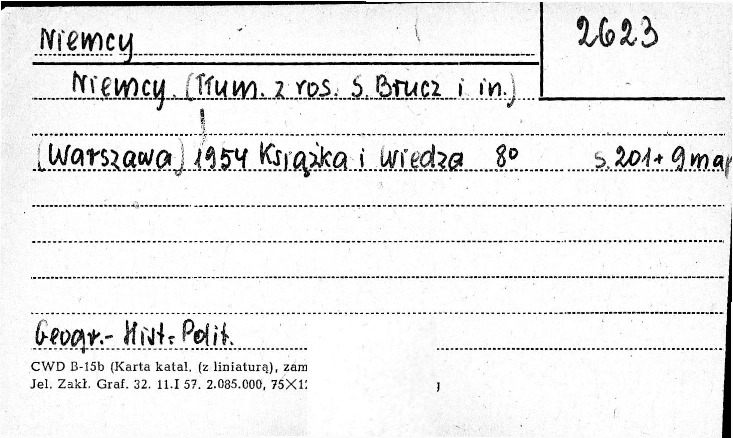 Niemcy
2623
Niemcy. (Tłum. z ros. S. Brucz i in.)
(Warszawa) 1954 Książka i Wiedza 8º s. 201 + 9 map
Geogr.- Hist.- Polit.
CWD B-15b (Karta katal. (z liniaturą), zam
Jel. Zakł. Graf. 32. 11.I 57. 2.085.000, 75×12